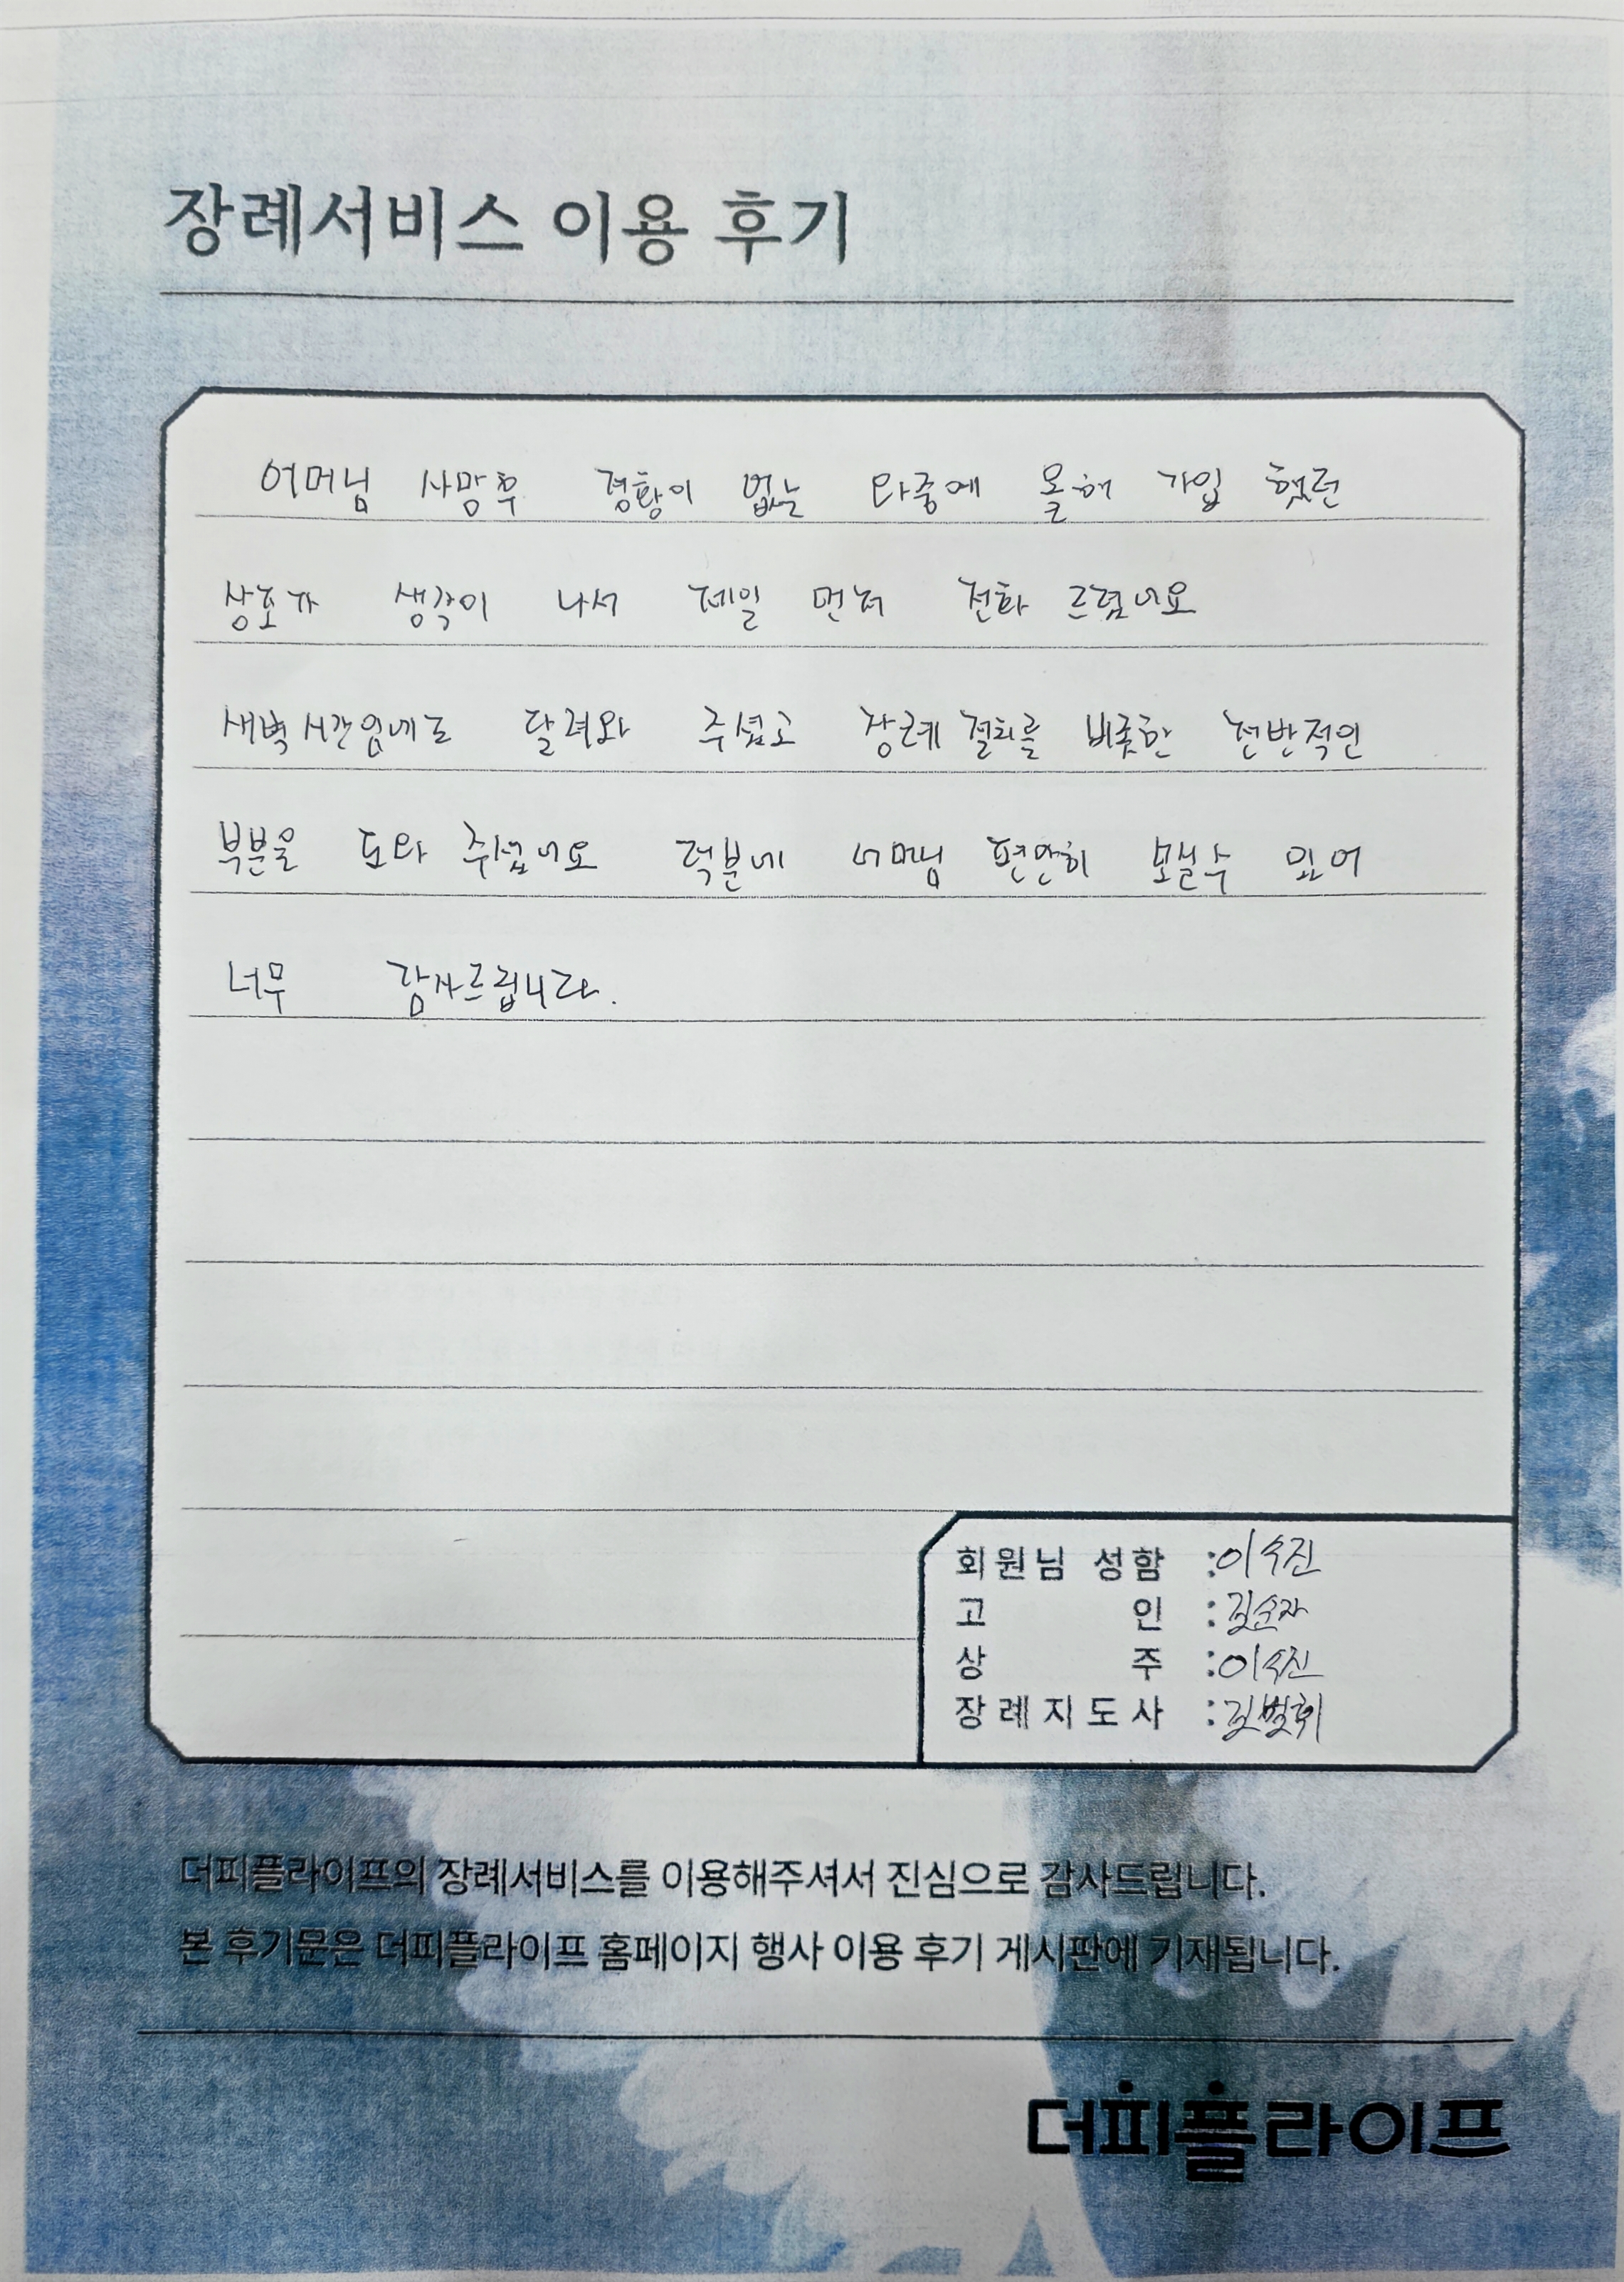 장례서비스 이용 후기
어머님 사망후 경황이 없는 와중에 올해 가입 했던
상조가 생각이 나서 제일 먼저 전화 드렸네요
새벽시간임에도 달려와 주셨고 장례 절차를 비롯한 전반적인
부분을 도와 주셨네요 덕분에 어머님 편안히 모실수 있어
너무 감사드립니다.
회원님 성함 : 이수진
고 인 : 김순자
상 주 : 이수진
장례지도사 : 김범휘
더피플라이프의 장례서비스를 이용해주셔서 진심으로 감사드립니다.
본 후기문은 더피플라이프 홈페이지 행사 이용 후기 게시판에 기재됩니다.
더피플라이프